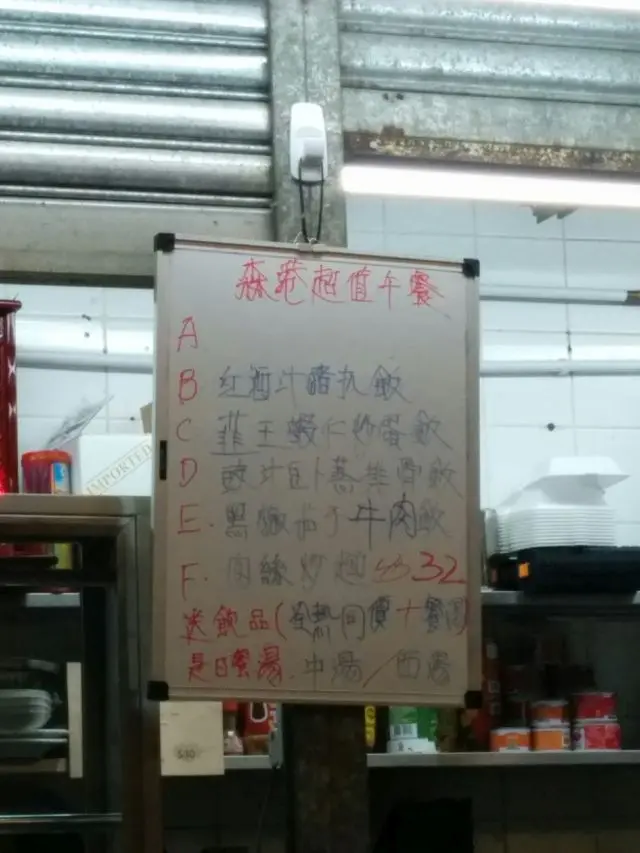 超值午餐
A
B 红酒汁豬扒飯
C 韮王蝦仁炒蛋飯
D 豉汁蒸排骨飯
E. 黑椒茄子牛肉飯
F. 肉絲炒麵 32
送飲品(熱同價十
是日餐湯.中湯/西湯
IMPORTED